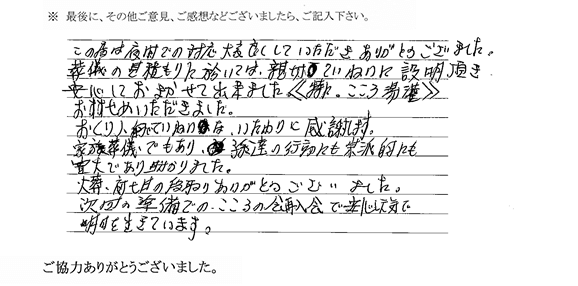 ※ 最後に、その他ご意見、ご感想などございましたら、ご記入下さい。
この度は夜間での対応大変良くしていただきありがとうございました。
葬儀の見積もりに於いては、親切ていねいに設明頂き
安心しておまかせて出来ました。《特に。こころ場確》
お務めいただきました。
おくり人 ていねいな、いたわりに感謝します。
家族葬儀でもあり、派遣の行動にも宗派的にも
寛大であり助かりました。
火葬、初七日の段取りありがとうございました。
次回の準備での、こころの会再入会で安心元気で
明日を生きています。
ご協力ありがとうございました。